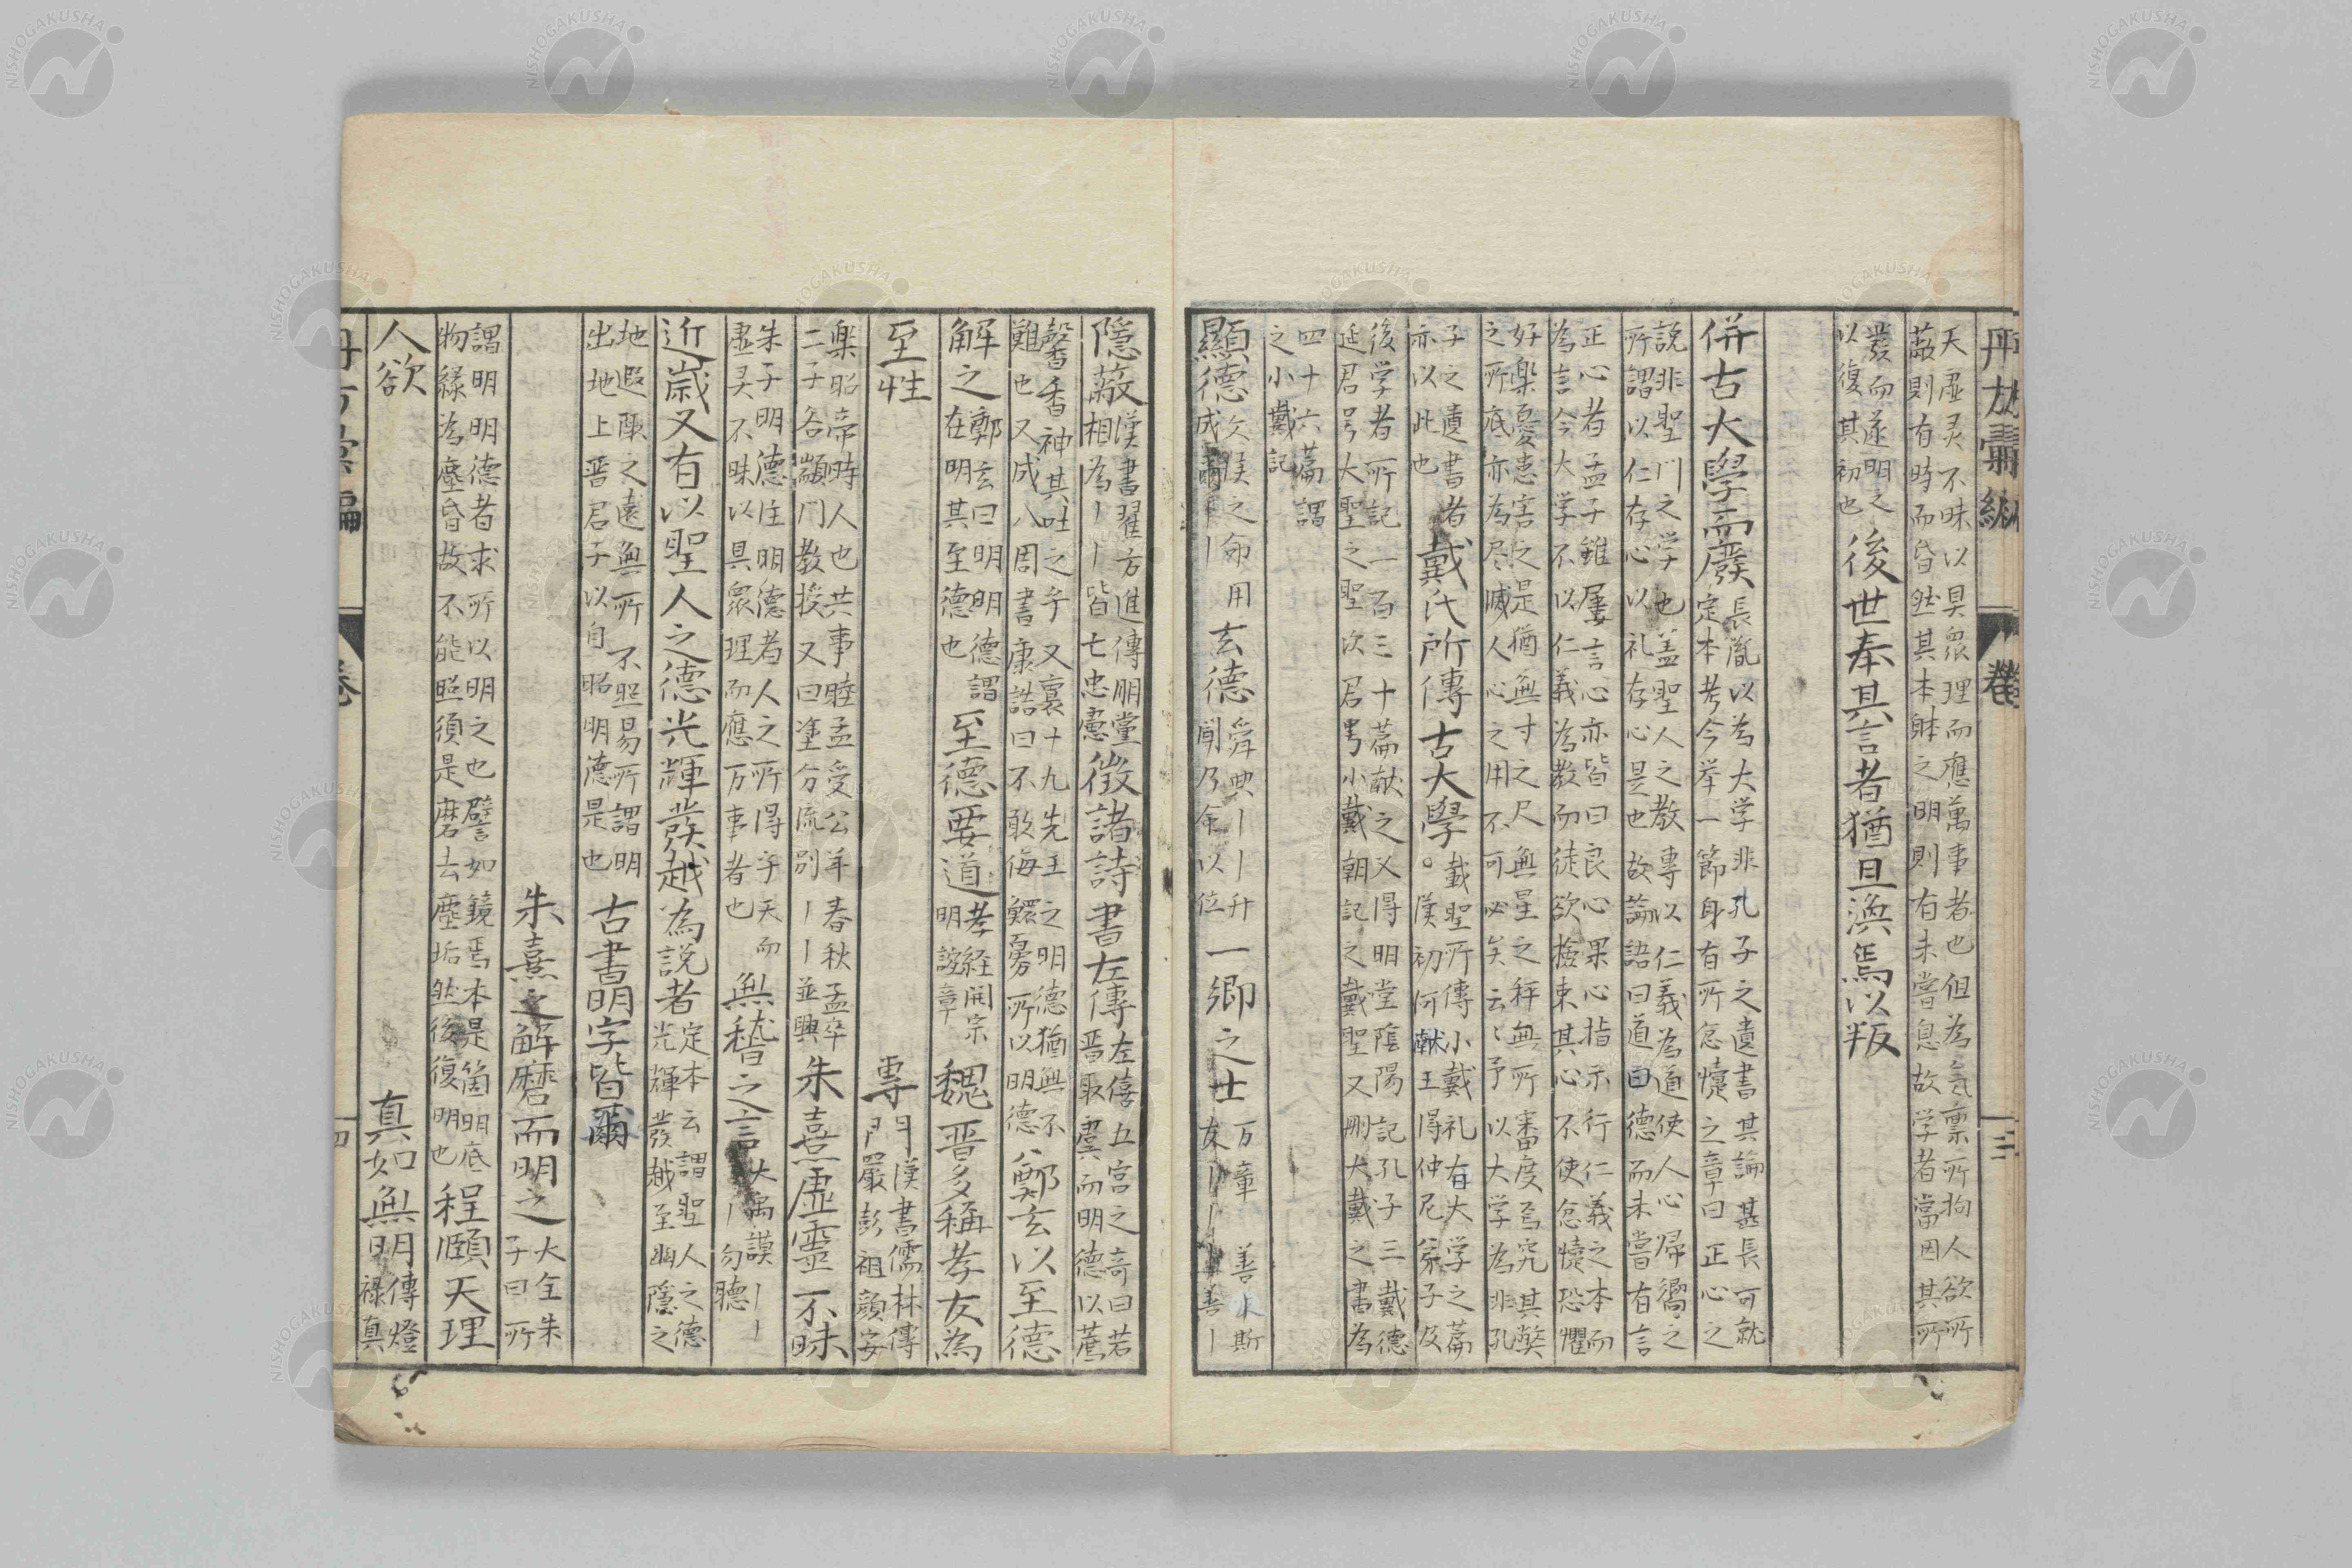 天虚灵不昧以具衆理而應萬事者也但為気禀所拘人欲所
蔽則有時而昏然其本躰之明則有未嘗息故学者當因其所
發而遂明之
以復其初也
後世奉其言者猶且渙焉以叛
併古大學而廢
長胤以為大学非孔子之遺書其論甚長可就
定本考今挙一節身有所忿懥之章曰正心之
説非聖門之学也盖聖人之教専以仁義為道使人心帰嚮之
所謂以仁存心以礼存心是也故論語曰道曰德而未嘗有言
正心者孟子雖屡言心亦皆曰良心果心指示行仁義之本而
為言今大学不以仁義為教而徒欲捡束其心不使忿懥恐懼
好楽憂患害之是猶無寸之尺無星之秤無所審度焉究其弊
之所底亦為尽滅人心之用不可必矣云々予以大学為非孔
子之遺書者
亦以此也
戴氏所傳古大學。
戴聖所傳小戴礼有大学之篇
漢初何献王得仲尼弟子及
後学者所記一百三十篇献之又得明堂陰陽記孔子三戴德
延君号大聖之聖次君号小戴朝記之戴聖又刪大戴之書為
四十六篇謂
之小戴記
顯德
文侯之命用
成爾丨丨
玄德
舜典丨丨升
聞乃命以位
一郷之士
万章 善士斯
友丨丨善丨
丹
卷
三
隠蔽
漢書翟方進傳朋黨
相為丨丨皆七忠慮
徴諸詩書左傳
左僖五宮之奇曰若
晋取虞而明德以薦
馨香神其吐之乎又襄十九先王之明德猶無不
難也又成八周書康誥曰不敢侮鰥寡所以明德
鄭玄以至德
解之
鄭玄曰明明德謂
在明其至德也
至德要道
孝経開宗
明誼章
魏晋多稱孝友為
至性
專
門漢書儒林傳
門嚴彭祖顔安
楽昭帝時人也共事睦孟受公羊春秋孟卒
二子各顓門教授又曰塗分流別丨丨並興
朱熹虚靈不昧
朱子明德住明德者人之所得乎天而
虚灵不昧以具衆理而應万事者也
無稽之言
大禹謨丨丨
丨勿聴
近歳又有以聖人之德光輝發越為説者
定本云謂聖人之德
光輝發越至幽隠之
地遐陬之遠無所不照易所謂明
出地上晋君子以自昭明德是也
古書明字皆爾
朱熹之解磨而明之
大全朱
子曰所
謂明明德者求所以明之也譬如鏡焉本是箇明底
物縁為塵昏故不能照須是磨去塵垢然後復明也
程頤天理
人欲
真如無明
傳燈
禄真
卷
四